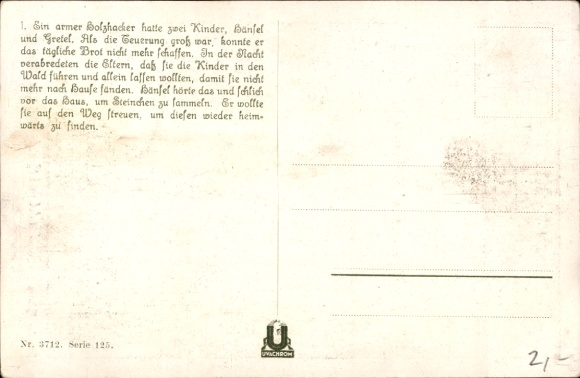 1. Ein armer Holzhacker hatte zwei Kinder, Hänsel
und Gretel. Als die Teuerung groß war, konnte er
das tägliche Brot nicht mehr schaffen. In der Nacht
verabredeten die Eltern, daß sie die Kinder in den
Wald führen und allein lassen wollten, damit sie nicht
mehr nach Hause fänden. Hänsel hörte das und schlich
vor das Haus, um Steinchen zu sammeln. Er wollte
sie auf den Weg streuen, um diesen wieder heim-
wärts zu finden.
UVACHROM
Nr. 3712. Serie 125.
2,-